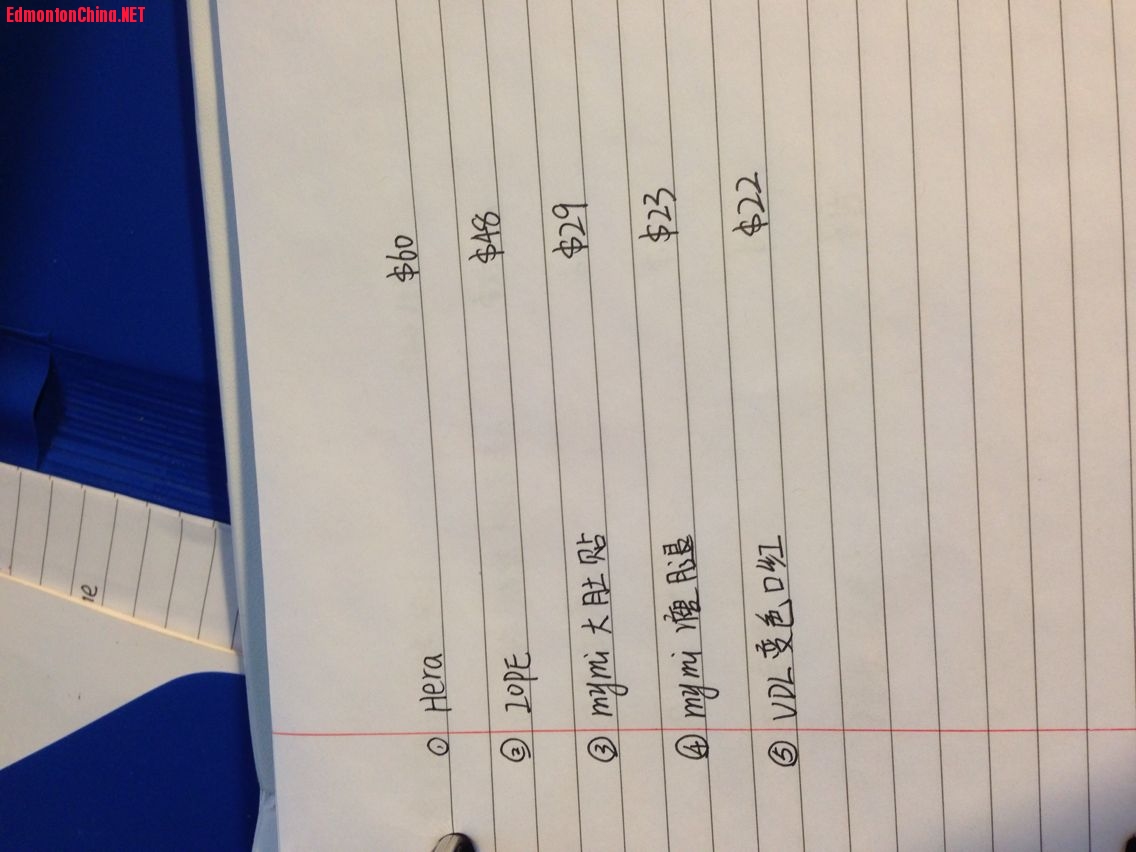 EdmontonChina.NET
① Hera $60
② IOPE $48
③ mymi 大肚贴 $29
④ mymi 瘦腿 $23
⑤ VDL 变色口红 $22